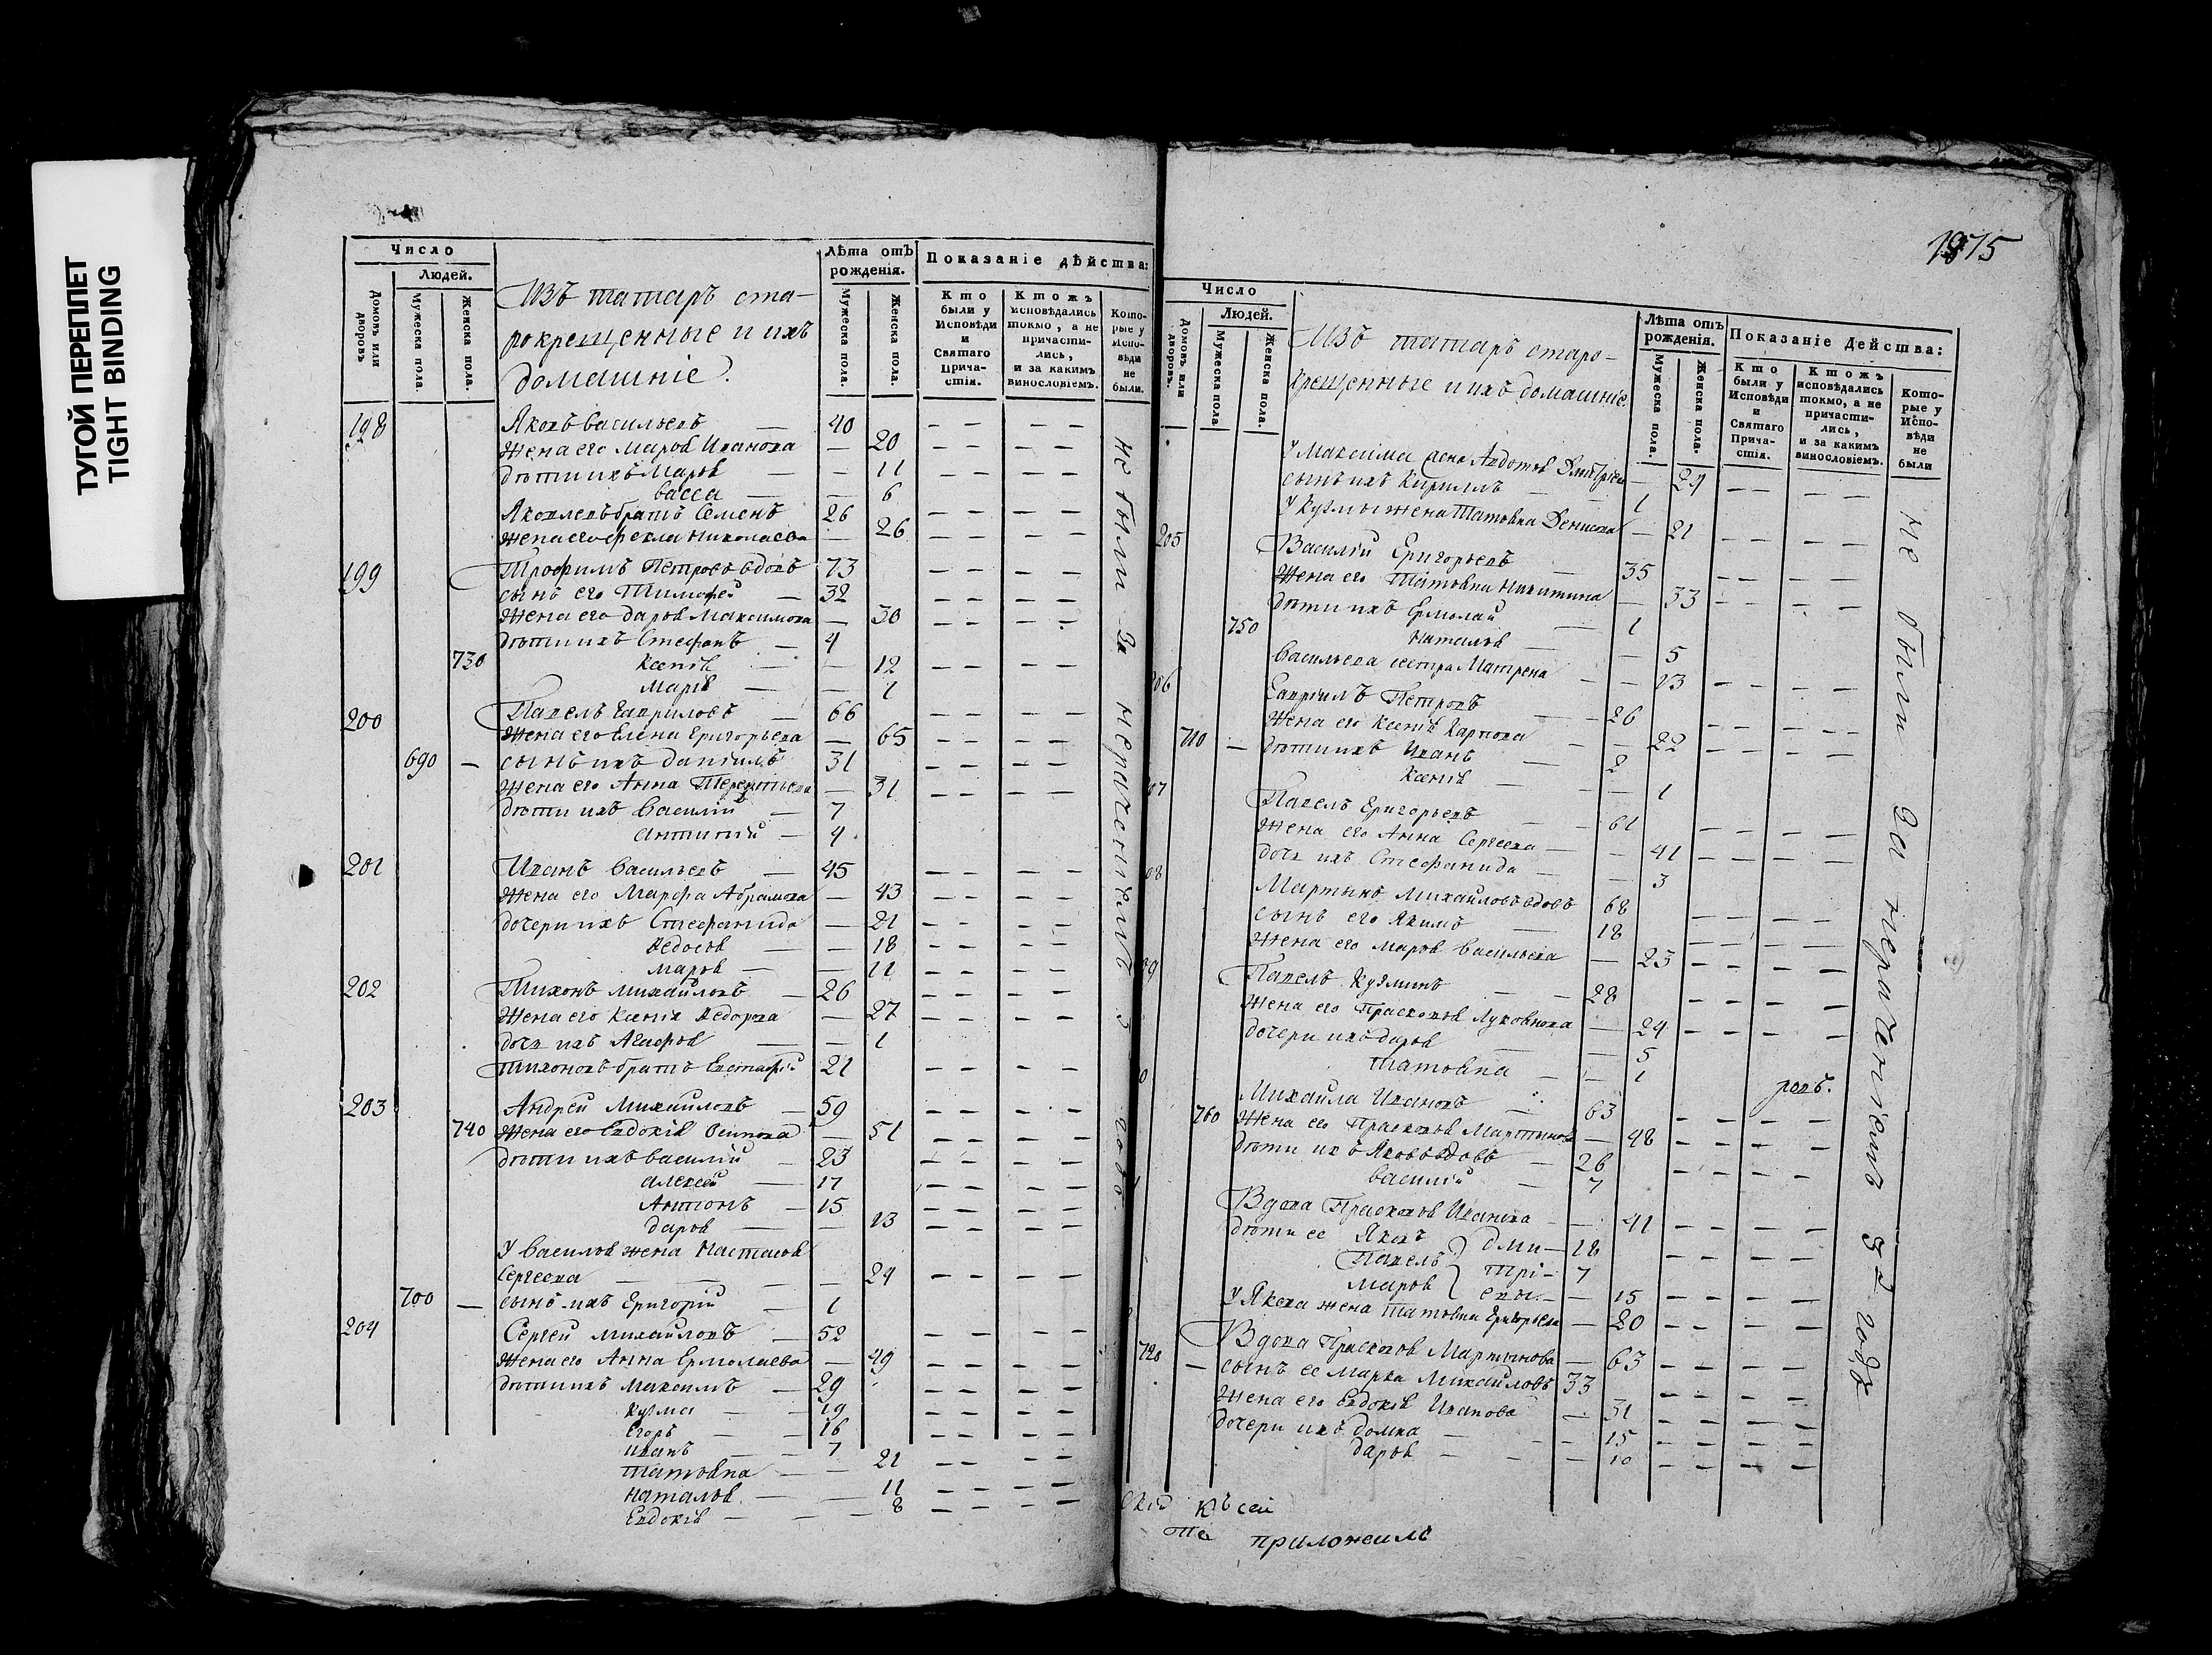 ТУГОЙ ПЕРЕПЛЕТ
TIGHT BINDING
Число
Людей.
Домовъ или дворовъ
Мужеска пола.
Женска пола.
Изъ татаръ ста-
рокрещенные и ихъ
домашніе.
Лѣта отъ рожденія.
Мужеска пола.
Женска пола.
Показаніе дѣйства:
Кто были у Исповѣди и Святаго Прича-стія.
Ктожъ исповѣдались токмо, а не причасти-лись, и за какимъ винословіемъ.
Кото-рые у Испо-вѣди не были.
198 Яковъ Васильевъ — 40
Жена его Марѳа Иванова — 20
дѣти ихъ Марѳа — — 11
Васса — — 6
Яковлевъ братъ Семенъ 26
Жена его Фекла Николаева — 26
199 Трофимъ Петровъ вдовъ 73
сынъ его Тимофей — 32
Жена его Дарья Максимова — 30
дѣти ихъ Стефанъ — 4
730 Ксенія — — 12
Марія — — 1
200 Павелъ Гавриловъ — 66
Жена его Елена Григорьева — 65
690 — сынъ ихъ Даніилъ 31
Жена его Анна Терентьева — 31
дѣти ихъ Василій — 7
Антипій — 4
201 Иванъ Васильевъ — 45
Жена его Марфа Абрамова — 43
дочери ихъ Стефанида — 21
Ѳедосья — — 18
— — 11
202 Тихонъ Михайловъ — 26
Жена его Ксенія Ѳедорова — 27
дочь ихъ Агафья — — 1
Тихоновъ братъ Евстафій 21
203 Андрей Михайловъ — 59
740 Жена его Евдокія Осипова — 51
дѣти ихъ Василій — 23
Алексей — 17
Антонъ — 15
Дарья — — 13
У Василья жена Настасья
Сергеева — — — 24
700 — сынъ ихъ Григорій — 1
204 Сергей Михайловъ — 52
Жена его Анна Ермолаева — 49
дѣти ихъ Максимъ — 29
Кузма — — 19
Егоръ — — 16
Иванъ — — 7
Татьяна — — 21
Наталья — — 11
Евдокія — — — 8
не были за нерачениемъ 3 годъ
1815
Число
Людей.
Домовъ или дворовъ.
Мужеска пола
Женска пола.
Изъ татаръ старо-
крещенные и ихъ домашніе.
Лѣта отъ рожденія.
Мужеска пола.
Женска пола.
Показаніе Действа:
Кто были у Исповѣди и Святаго Прича-стія.
Ктожъ исповѣдались токмо, а не причасти-лись, и за какимъ винословіемъ.
Кото-рые у Испо-вѣди не были
У Максима жена Авдотья — 24
сынъ ихъ Кириллъ — — 1
У Кузмы жена Татьяна Денисова — 21
205 Василій Григорьевъ — 35
Жена его Татьяна Никитина — 33
дѣти ихъ Ермолай — 1
750 Наталья — — 5
Васильева сестра Матрена — — 13
206 Гавріилъ Петровъ — — 26
Жена его Ксенія Карпова — — 22
710 — дѣти ихъ Иванъ — 2
Ксенія — — 1
07 Павелъ Григорьевъ — — 61
Жена его Анна Сергеева — — 41
дочь ихъ Стефанида — — 3
08 Мартынъ Михайловъ вдовъ 68
сынъ его Якимъ — 18
Жена его Васильева — 23
09 Павелъ Кузминъ — — 28
Жена его Прасковья — 24
дочери ихъ Дарья — — 5
Татьяна — — 1
0 Михайла Ивановъ — 63
760 Жена его Прасковья Мартынова — 48
дѣти ихъ Яковъ вдовъ — 26
Василій — 7
Вдова Прасковья Иванова — — 41
дѣти ее Яковъ } Дми — 18
Павелъ } трі — 7
} евы — — 15
У Якова жена Татьяна Григорьева — 20
Вдова Прасковья Мартынова — 63
720 — сынъ ее Марка Михайловъ 33
Жена его Евдокія Иванова — 31
дочери ихъ Домна — — — 15
Дарья — — — 10
ровъ.
не были за нерачениемъ 3й годъ
къ сей
приложилъ